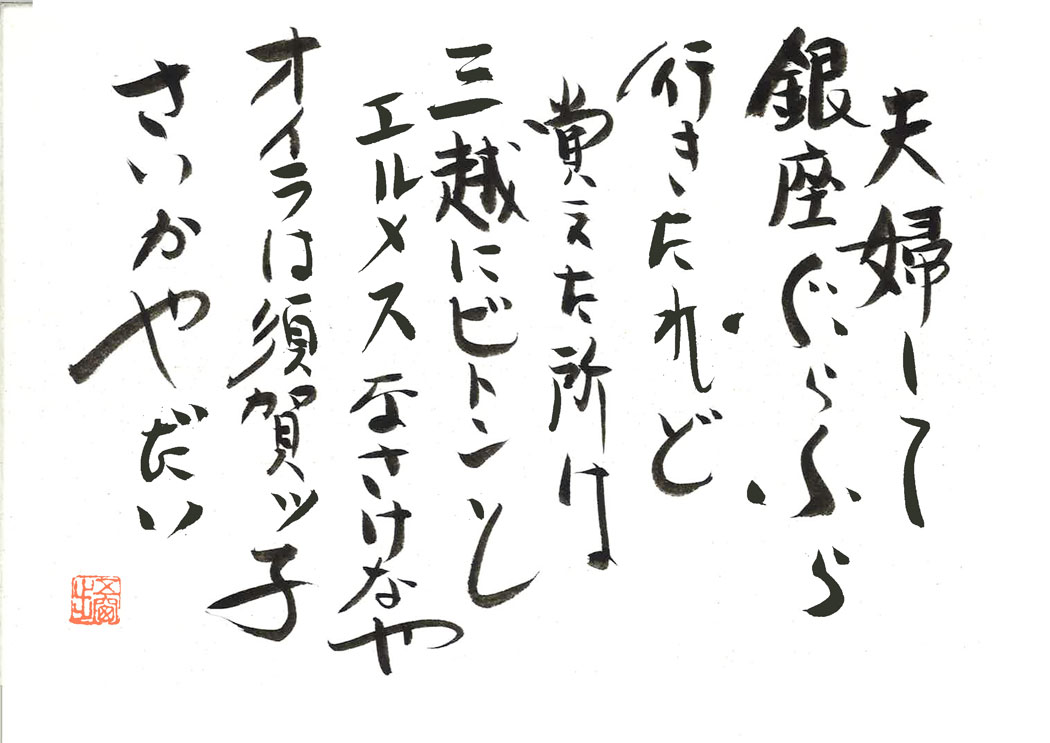 夫婦して
銀座ぶらぶら
行きたれど
覚えた所は
三越にビトンと
エルメスなさけなや
オイラは須賀ッ子
さいかやだい